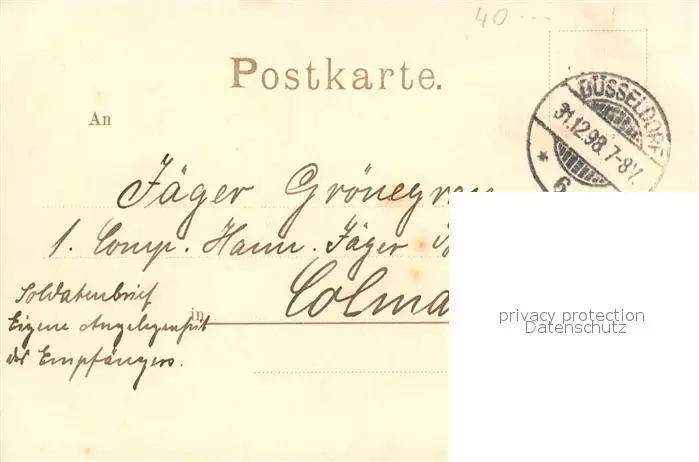 40
Postkarte.
DÜSSELDORF
31.12.98. 7-8V.
* 6
An
Jäger
1. Comp. Hann. Jäger
in Colma
Soldatenbrief
Eigene Angelegenheit
des Empfängers.
privacy protection
Datenschutz